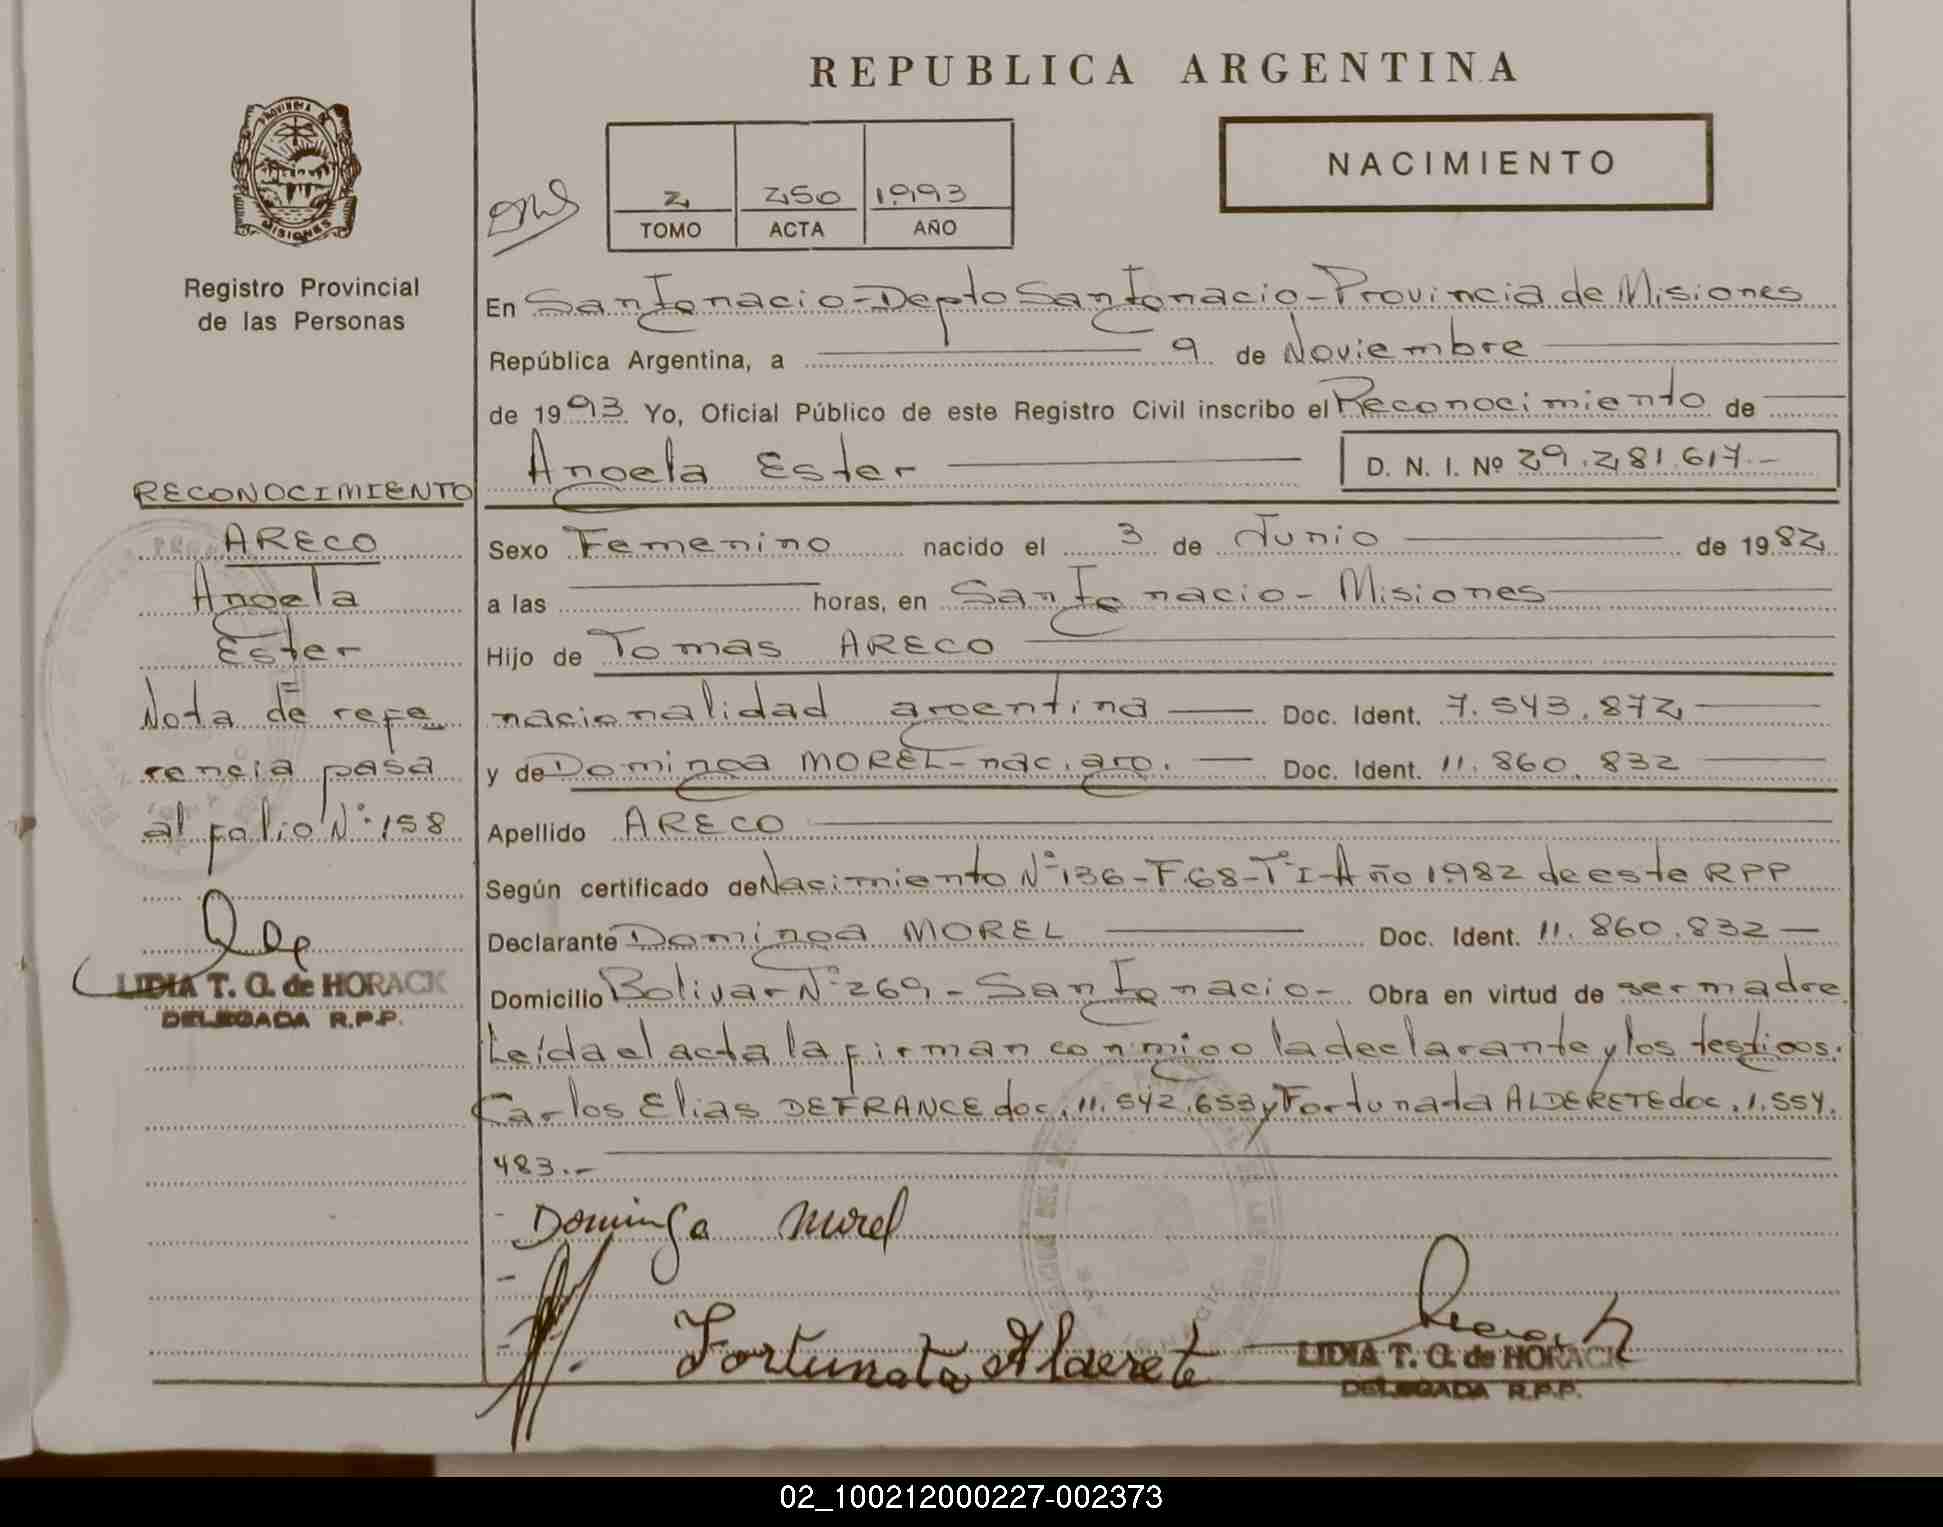 REPUBLICA ARGENTINA
PROVINCIA DE
MISIONES
Registro Provincial
de las Personas
2 250 1993
TOMO ACTA AÑO
NACIMIENTO
En San Ignacio - Depto San Ignacio - Provincia de Misiones
República Argentina, a 9 de Noviembre
de 1993 Yo, Oficial Público de este Registro Civil inscribo el Reconocimiento de
Angela Ester D. N. I. Nº 29.281.617.-
Sexo Femenino nacido el 3 de Junio de 1982
a las horas, en San Ignacio - Misiones
Hijo de Tomas ARECO
nacionalidad argentina Doc. Ident. 7.543.872
y de Dominga MOREL - nac. arg. Doc. Ident. 11.860.832
Apellido ARECO
Según certificado de Nacimiento Nº 136 - F.68 - Tº I - Año 1982 de este RPP
Declarante Dominga MOREL Doc. Ident. 11.860.832
Domicilio Bolivar Nº 269 - San Ignacio - Obra en virtud de ser madre
Leída el acta la firman conmigo la declarante y los testigos.
Carlos Elias DEFRANCE doc. 11.542.653 y Fortunata ALDERETE doc. 1.554.
483.-
Dominga Morel
Fortunata Alderete
LIDIA T. O. de HORACK
DELEGADA R.P.P.
RECONOCIMIENTO
ARECO
Angela
Ester
Nota de refe
rencia pasa
al folio Nº 158
LIDIA T. O. de HORACK
DELEGADA R.P.P.
02_100212000227-002373